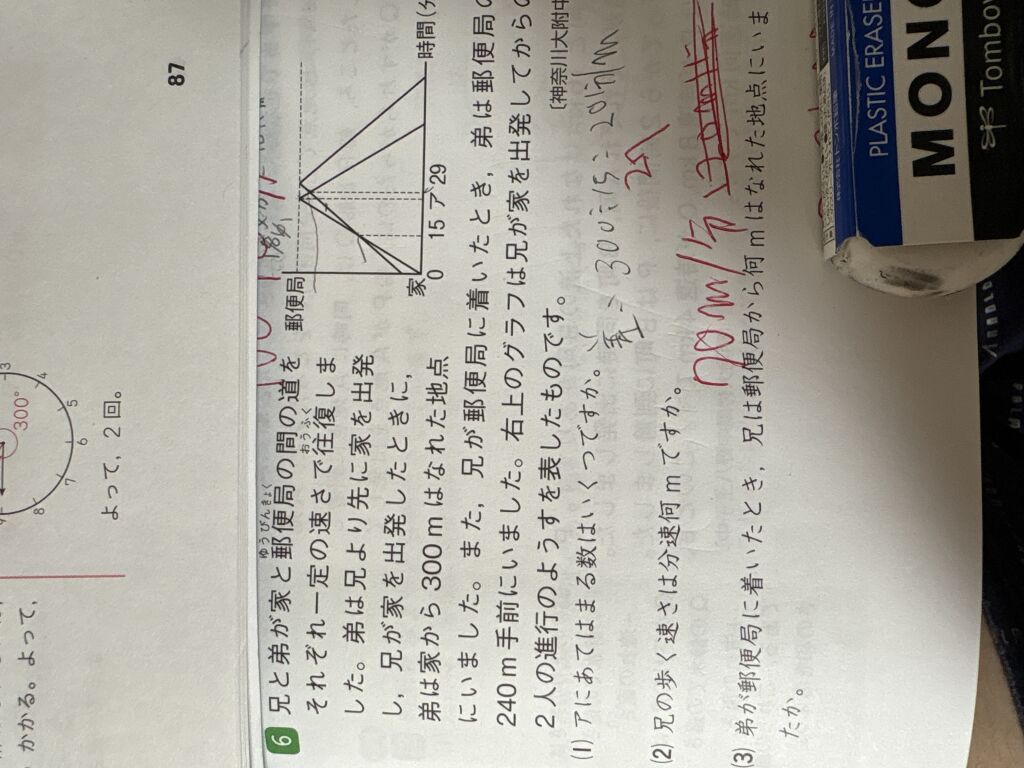 87
3
4
5
6
7
8
300°
よって，2回。
かかる。よって，
6
兄と弟が家と郵便局の間の道を
ゆうびんきょく
それぞれ一定の速さで往復しま
おうふく
した。弟は兄より先に家を出発
し，兄が家を出発したときに，
弟は家から300mはなれた地点
にいました。また，兄が郵便局に着いたとき，弟は郵便局の
240m手前にいました。右上のグラフは兄が家を出発してからの
2人の進行のようすを表したものです。
〔神奈川大附中
郵便局
家
0
15
ア
29
時間(分
(1) アにあてはまる数はいくつですか。
300÷15=20m/m
25
(2) 兄の歩く速さは分速何mですか。
70m/分
(3) 弟が郵便局に着いたとき，兄は郵便局から何mはなれた地点にいま
たか。
PLASTIC ERASER
MONO
Tombow